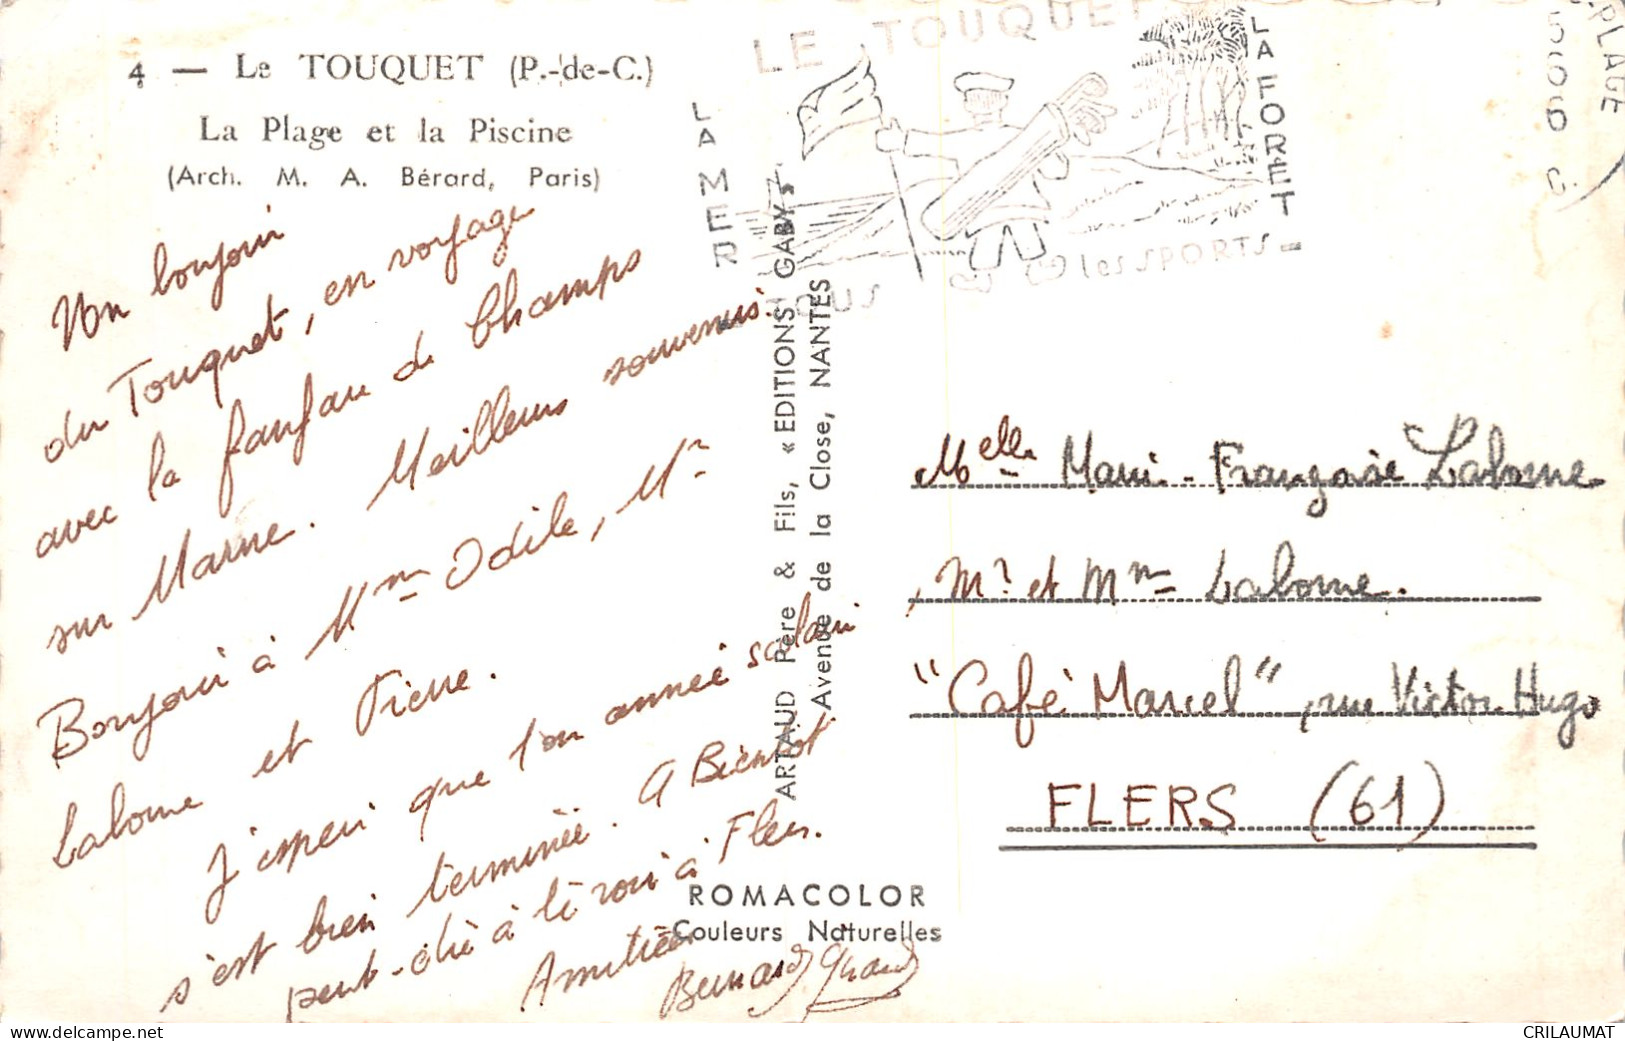 4 — Le TOUQUET (P.-de-C.)
La Plage et la Piscine
(Arch. M. A. Bérard, Paris)
Un bonjour
du Touquet, en voyage
avec la fanfare de Champs
sur Marne. Meilleurs souvenirs.
Bonjour à Mme Odile, Mr
Lalorme et Pierre.
J'espère que l'année scolaire
s'est bien terminée. A Bientôt
peut-être à te voir à Flers.
Amitiés
Bernard
ARTAUD Père & Fils, « EDITIONS GABY »
Avenue de la Close, NANTES
ROMACOLOR
Couleurs Naturelles
LE TOUQUET
LA MER
LA FORET
TOUS les SPORTS
-PLAGE
Melle Marie-Françoise Lalorme
, Mr et Mme Lalorme.
"Café Marcel", rue Victor Hugo
FLERS (61)
CRILAUMAT